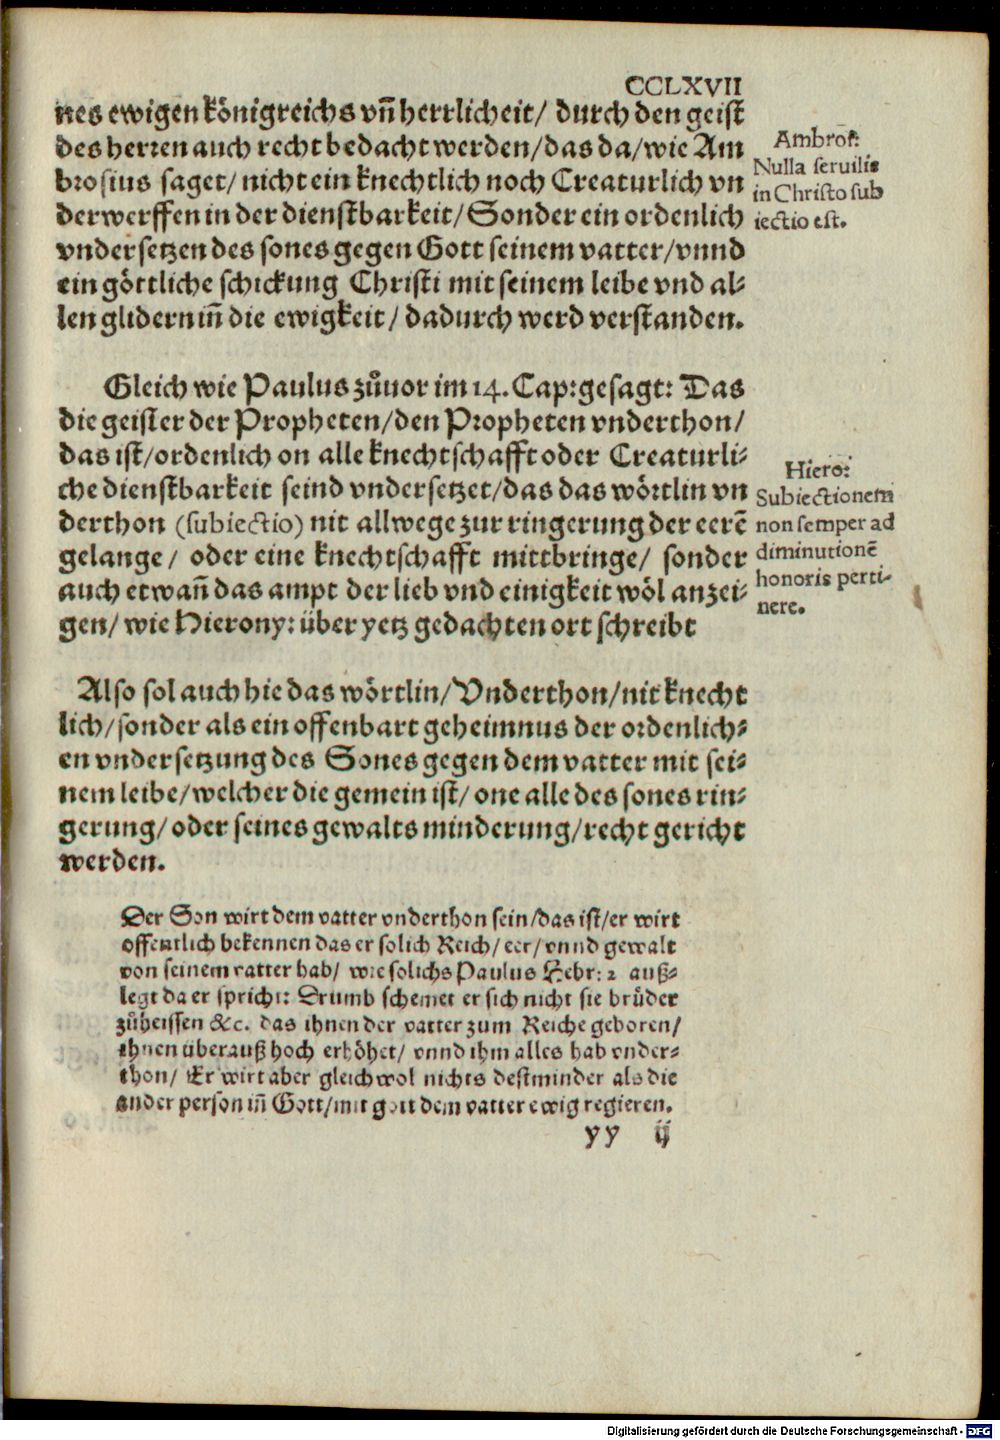 CCLXVII
nes ewigen königreichs vñ herrlicheit/ durch den geist
des herren auch recht bedacht werden/das da/wie Am
brosius saget/ nicht ein knechtlich noch Creaturlich vn
derwerffen in der dienstbarkeit/Sonder ein ordenlich
vndersetzen des sones gegen Gott seinem vatter/vnnd
ein göttliche schickung Christi mit seinem leibe vnd al-
len glidern iñ die ewigkeit/ dadurch werd verstanden.
Ambros:
Nulla seruilis
in Christo sub
iectio est.
Gleich wie Paulus zůuor im 14. Cap: gesagt: Das
die geister der Propheten/den Propheten vnderthon/
das ist/ordenlich on alle knechtschafft oder Creaturli-
che dienstbarkeit seind vndersetzet/das das wörtlin vn
derthon (subiectio) nit allwege zur ringerung der eerē
gelange/ oder eine knechtschafft mittbringe/ sonder
auch etwañ das ampt der lieb vnd einigkeit wöl anzei-
gen/ wie Hierony: über yetz gedachten ort schreibt
Hiero:
Subiectionem
non semper ad
diminutionē
honoris perti-
nere.
Also sol auch hie das wörtlin/Vnderthon/nit knecht
lich/sonder als ein offenbart geheimnus der ordenlich-
en vndersetzung des Sones gegen dem vatter mit sei-
nem leibe/welcher die gemein ist/ one alle des sones rin-
gerung/oder seines gewalts minderung/recht gericht
werden.
Der Son wirt dem vatter vnderthon sein/das ist/er wirt
offentlich bekennen das er solich Reich/ eer/ vnnd gewalt
von seinem vatter hab/ wie solichs Paulus Hebr: 2 auß-
legt da er spricht: Drumb schemet er sich nicht sie brůder
zůheissen &c. das ihnen der vatter zum Reiche geboren/
ihnen überauß hoch erhöhet/ vnnd ihm alles hab vnder-
thon/ Er wirt aber gleichwol nichts destminder als die
ander person iñ Gott/mit gott dem vatter ewig regieren.
yy ij
Digitalisierung gefördert durch die Deutsche Forschungsgemeinschaft - DFG